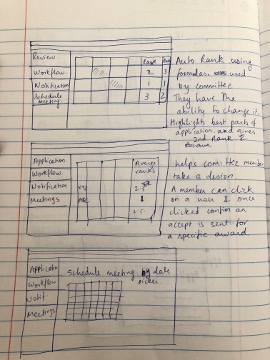 Review
Workflow
Notification
Schedule
meeting
Rank
2 3
1 1
3 2
Auto Rank using
formulas. used
by committee
They have the
ability to change it
Highlights best parts of
application, and gives
2nd Rank &
Application
Workflow
Notification
Meetings
Average
ranks
2.5
helps committee member
take a decision
A member can click
on a user & once
clicked confirm an
accept is sent for
a specific award
Applicatn
Workflow
Notif
Meetings
schedule meeting by date